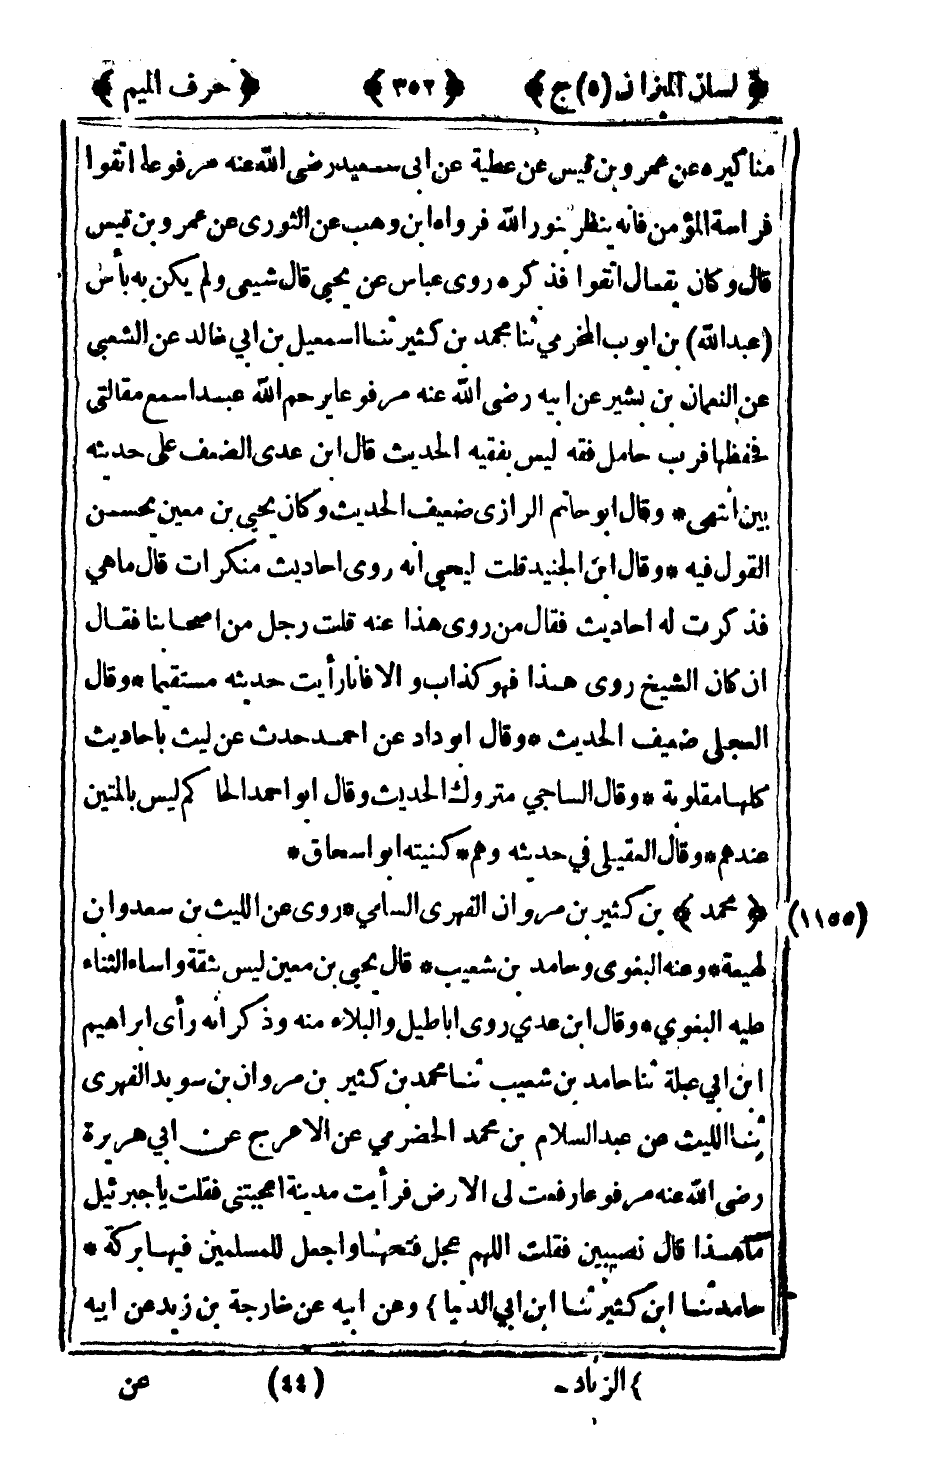 ﴿ لسان الميزان (٥) ج ﴾ ﴿ ٣٥٢ ﴾ ﴿ حرف الميم ﴾
مناكيره عن عمرو بن قيس عن عطية عن ابى سعيد رضى الله عنه مرفوعا اتقوا
فراسة المؤمن فانه ينظر بنور الله فرواه ابن وهب عن الثورى عن عمرو بن قيس
قال وكان يقال اتقوا فذكره روى عباس عن يحيى قال شيعى ولم يكن به بأس
(عبدالله) بن ايوب المخرمي ثنا محمد بن كثير ثنا اسمعيل بن ابي خالد عن الشعبى
عن النعمان بن بشير عن ابيه رضى الله عنه مرفوعا يرحم الله عبدا سمع مقالتى
فحفظها فرب حامل فقه ليس بفقيه الحديث قال ابن عدى الضعف على حديثه
بين انتهى * وقال ابو حاتم الرازى ضعيف الحديث وكان يحيى بن معين يحسن
القول فيه * وقال ابن الجنيد قلت ليحيى انه روى احاديث منكرات قال ماهي
فذكرت له احاديث فقال من روى هذا عنه قلت رجل من اصحابنا فقال
ان كان الشيخ روى هذا فهو كذاب والا فانا رأيت حديثه مستقيما * وقال
العجلى ضعيف الحديث * وقال ابو داد عن احمد حدث عن ليث باحاديث
كلها مقلوبة * وقال الساجي متروك الحديث وقال ابو احمد الحاكم ليس بالمتين
عندهم * وقال العقيلى في حديثه وهم * كنيته ابو اسحاق *
(١١٥٥) ﴿ محمد ﴾ بن كثير بن مروان الفهرى السامي * روى عن الليث بن سعد وابن
لهيعة * وعنه البغوى وحامد بن شعيب * قال يحيى بن معين ليس بثقة واساء الثناء
عليه البغوي * وقال ابن عدي روى اباطيل والبلاء منه وذكر انه رأى ابراهيم
ابن ابي عبلة ثنا حامد بن شعيب ثنا محمد بن كثير بن مروان بن سويد الفهرى
ثنا الليث عن عبد السلام بن محمد الحضرمي عن الاعرج عن ابي هريرة
رضى الله عنه مرفوعا رفعت لى الارض فرأيت مدينة اعجبتنى فقلت يا جبرئيل
ماهذا قال نصيبين فقلت اللهم عجل فتحها واجعل للمسلمين فيها بركة *
حامد ثنا ابن كثير ثنا ابن ابي الدنيا } وعن ابيه عن خارجة بن زيد عن ابيه
} الزناد - (٤٤) عن